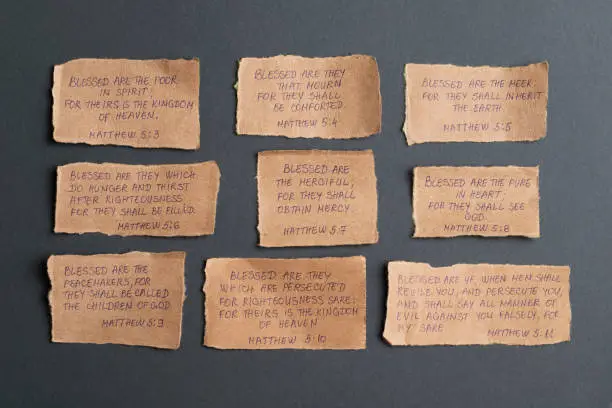 BLESSED ARE THE POOR
IN SPIRIT;
FOR THEIRS IS THE KINGDOM
OF HEAVEN.
MATTHEW 5:3
BLESSED ARE THEY
THAT MOURN
FOR THEY SHALL
BE COMFORTED.
MATTHEW 5:4
BLESSED ARE THE MEEK:
FOR THEY SHALL INHERIT
THE EARTH.
MATTHEW 5:5
BLESSED ARE THEY WHICH
DO HUNGER AND THIRST
AFTER RIGHTEOUSNESS
FOR THEY SHALL BE FILLED.
MATTHEW 5:6
BLESSED ARE
THE MERCIFUL;
FOR THEY SHALL
OBTAIN MERCY
MATTHEW 5:7
BLESSED ARE THE PURE
IN HEART;
FOR THEY SHALL SEE
GOD.
MATTHEW 5:8
BLESSED ARE THE
PEACEMAKERS; FOR
THEY SHALL BE CALLED
THE CHILDREN OF GOD
MATTHEW 5:9
BLESSED ARE THEY
WHICH ARE PERSECUTED
FOR RIGHTEOUSNESS SAKE:
FOR THEIRS IS THE KINGDOM
OF HEAVEN
MATTHEW 5:10
BLESSED ARE YE, WHEN MEN SHALL
REVILE YOU, AND PERSECUTE YOU,
AND SHALL SAY ALL MANNER OF
EVIL AGAINST YOU FALSELY, FOR
MY SAKE
MATTHEW 5:11